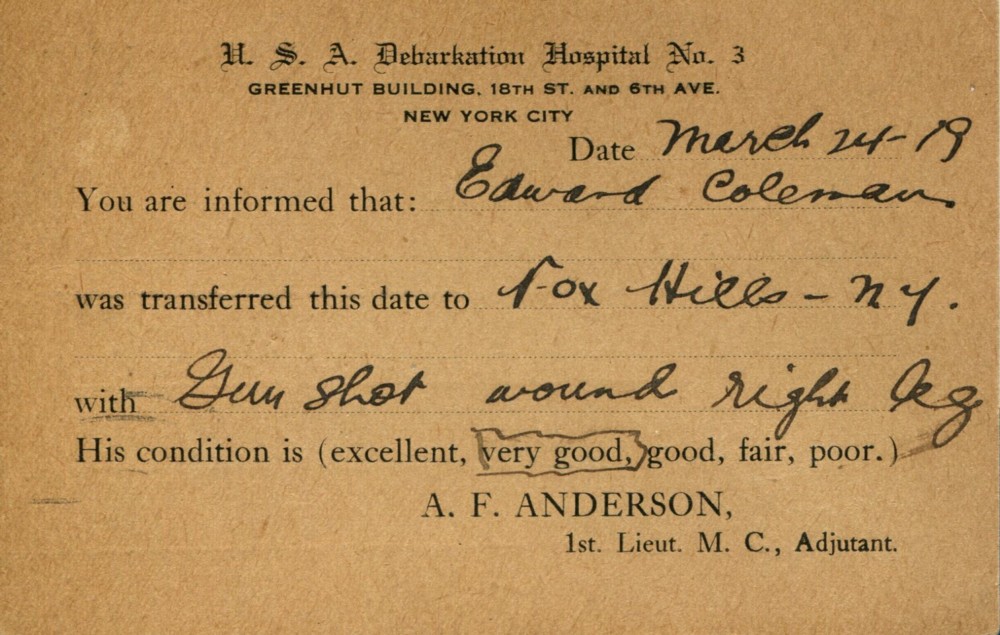 U. S. A. Debarkation Hospital No. 3
GREENHUT BUILDING, 18TH ST. AND 6TH AVE.
NEW YORK CITY
Date March 24-19
You are informed that: Edward Coleman
was transferred this date to Fox Hills - N Y.
with Gun shot wound right leg
His condition is (excellent, very good, good, fair, poor.)
A. F. ANDERSON,
1st. Lieut. M. C., Adjutant.